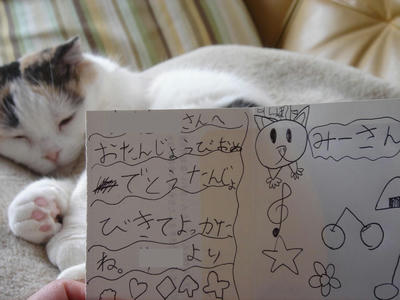 さんへ
おたんじょうびおめ
でとう たんじょ
びきてよっかた
ね。 より
みーさん